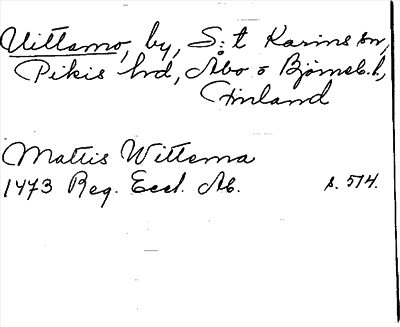 Uittamo, by, S:t Karins sn,
Pikis hrd, Åbo o Björneb. l,
Finland
Mattis Wittama
1473 Reg. Eccl. Ab. s. 574.